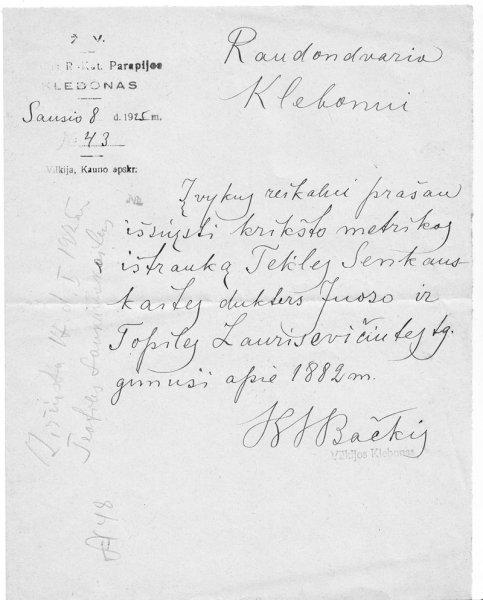 R.-Kat. Parapijos
KLEBONAS
Sausio 8 d. 1925 m.
№ 43
Vilkija, Kauno apskr.
Raudondvario
Klebonui
Įvykus reikalui prašau
išsiųsti krikšto metrikos
ištrauką Teklės Senkaus-
kaitės dukters Juozo ir
Topilės Laurisevičiutės tg.
gimusi apie 1882 m.
Bačkis
Vilkijos Klebonas
№ 48